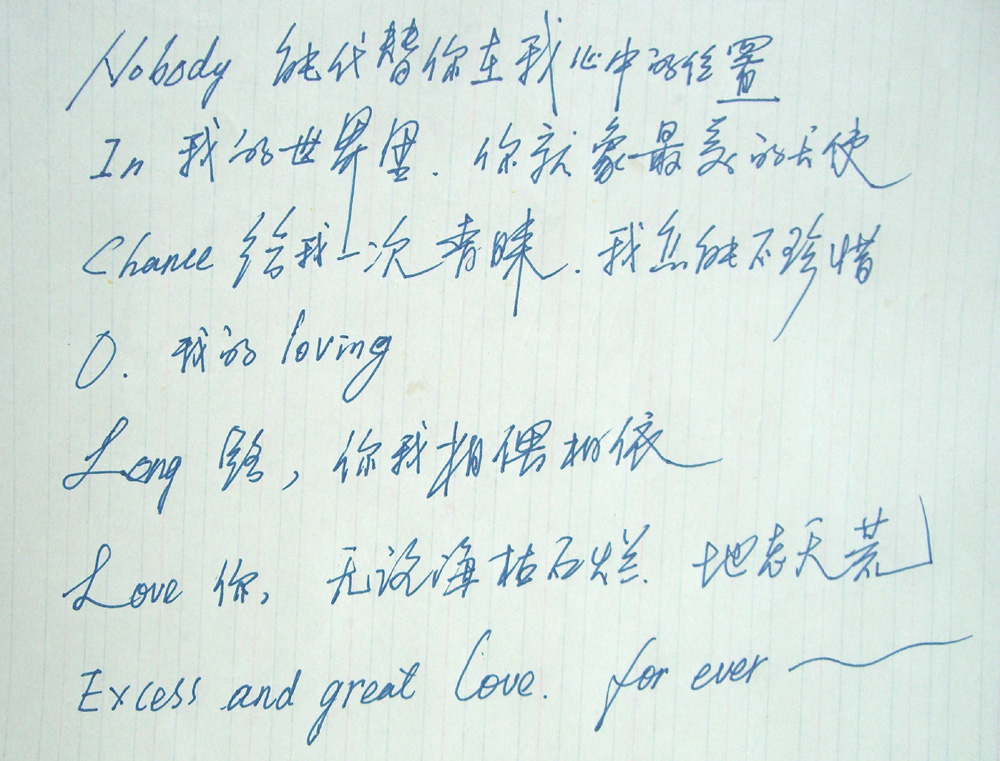 Nobody 能代替你在我心中的位置
In 我的世界里. 你就象最美的天使
Chance 给我一次青睐. 我怎能不珍惜
O. 我的 loving
Long 路, 你我相偎相依
Love 你, 无论海枯石烂. 地老天荒
Excess and great love. for ever